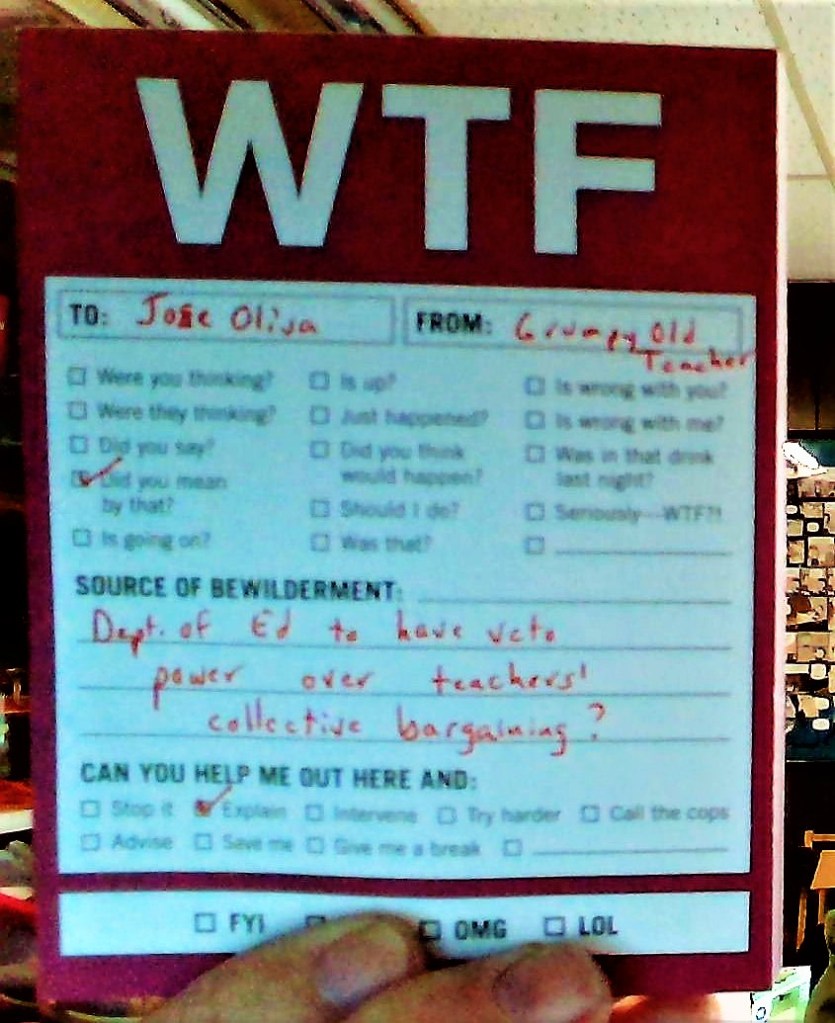 WTF
TO: Jose Oliva FROM: Grumpy Old Teacher
Were you thinking? Is up? Is wrong with you?
Were they thinking? Just happened? Is wrong with me?
Did you say? Did you think would happen? Was in that drink last night?
Did you mean by that? Should I do? Seriously—WTF?!
Is going on? Was that?
SOURCE OF BEWILDERMENT:
Dept. of Ed to have veto
power over teachers'
collective bargaining?
CAN YOU HELP ME OUT HERE AND:
Stop it Explain Intervene Try harder Call the cops
Advise Save me Give me a break
FYI OMG LOL